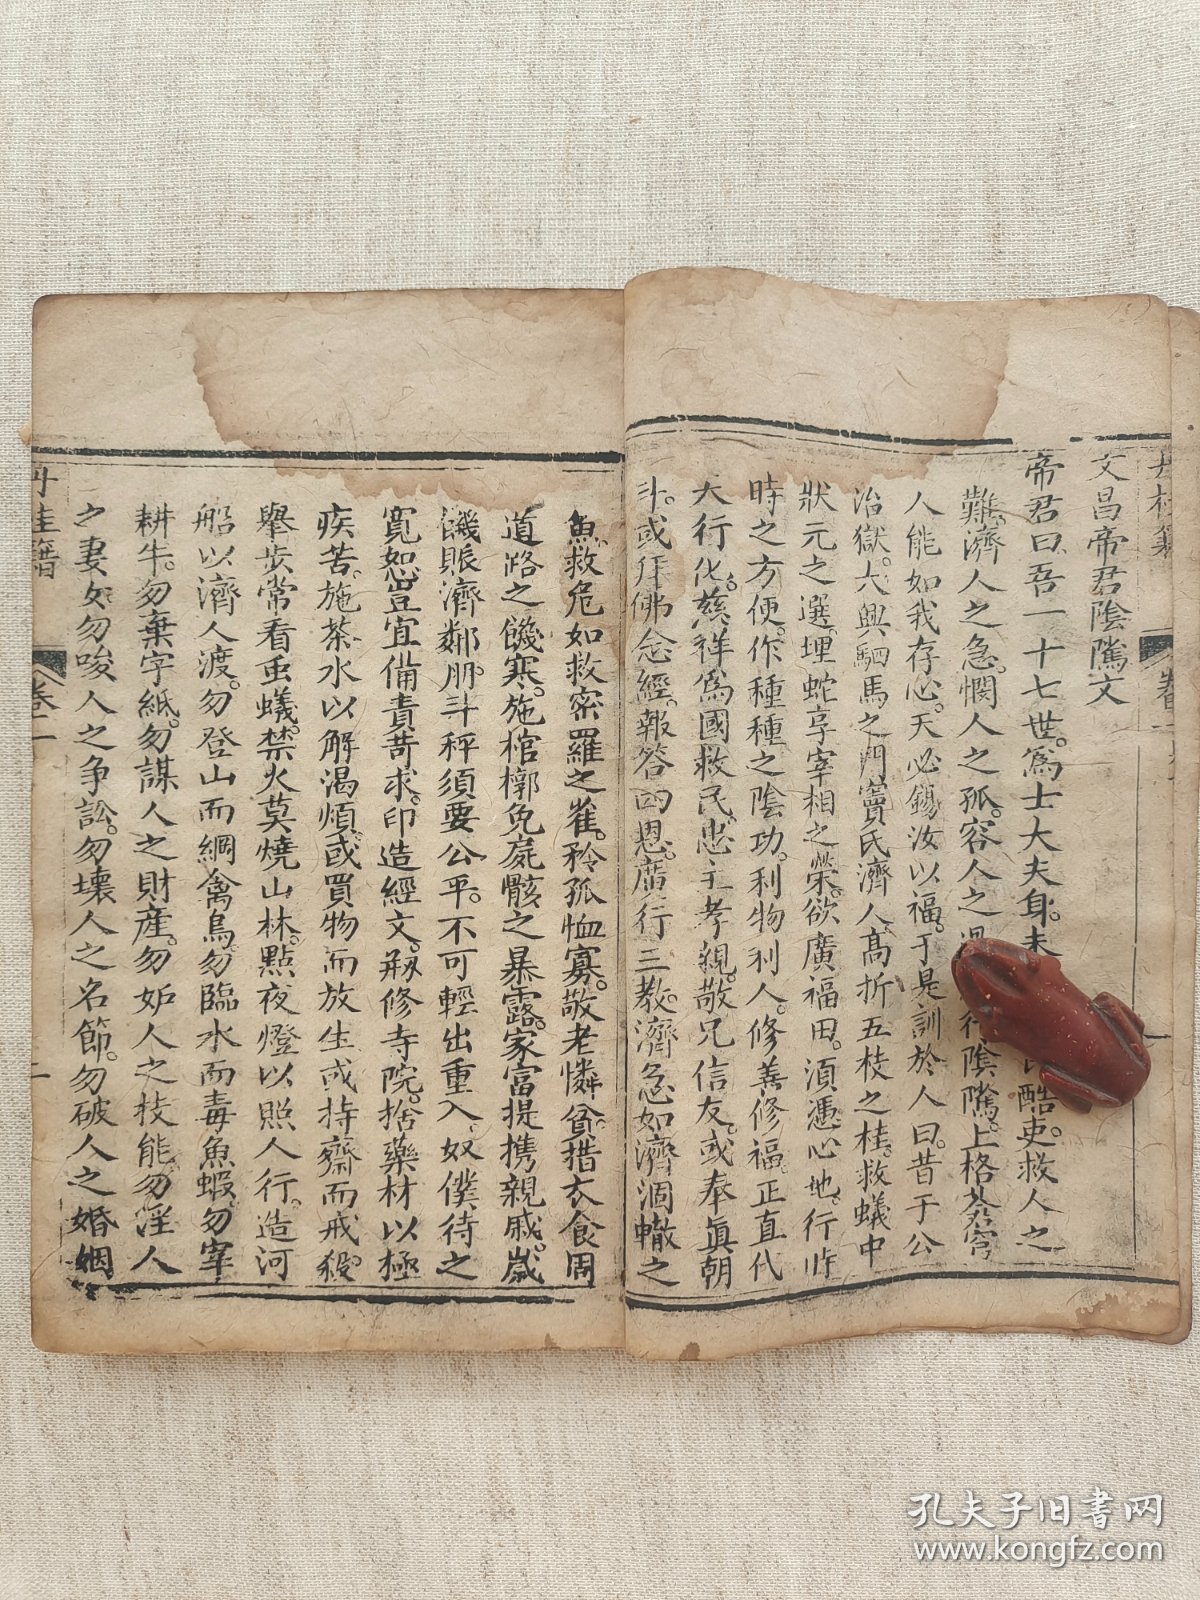 文昌帝君陰隲文
帝君曰吾一十七世。爲士大夫身。未酷吏。救人之
難。濟人之急。憫人之孤。容人之行陰隲。上格蒼穹
人能如我存心。天必錫汝以福。于是訓於人曰。昔于公
治獄。大興駟馬之門竇氏濟人。高折五枝之桂。救蟻中
狀元之選。埋蛇享宰相之榮。欲廣福田。須憑心地。行時
時之方便。作種種之陰功。利物利人。修善修福。正直代
天行化。慈祥爲國救民。忠主孝親。敬兄信友。或奉眞朝
斗。或拜佛念經。報答四恩。廣行三教。濟急如濟涸轍之
魚。救危如救密羅之雀。矜孤恤寡。敬老憐貧。措衣食周
道路之饑寒。施棺槨免屍骸之暴露。家富提携親戚。歲
饑賑濟鄰朋。斗秤須要公平。不可輕出重入。奴僕待之
寬恕。豈宜備責苛求。印造經文。剏修寺院。捨藥材以極
疾苦。施茶水以解渴煩。或買物而放生。或持齋而戒殺。
舉步常看虫蟻。禁火莫燒山林。點夜燈以照人行。造河
船以濟人渡。勿登山而網禽鳥。勿臨水而毒魚蝦。勿宰
耕牛。勿棄字紙。勿謀人之財產。勿妒人之技能。勿淫人
之妻女。勿唆人之争訟。勿壞人之名節。勿破人之婚姻
丹桂籍
卷二
一
孔夫子旧書网
www.kongfz.com